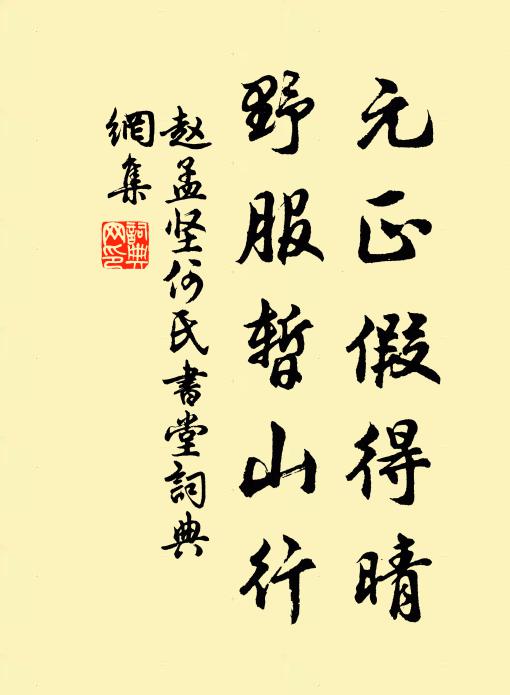 元正假得晴
野服暂山行
赵孟坚何氏书堂词典
網集
詞典
网印